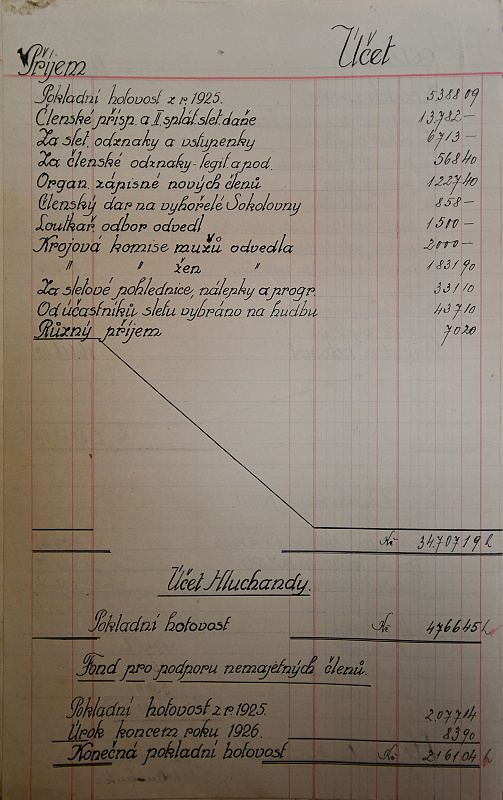 Příjem
Účet
Pokladní hotovost z r. 1925. 5388 09
Členské přísp. a II. splát. slet. daňe 13.782 —
Za slet. odznaky a vstupenky 6713 —
Za členské odznaky - legit a pod. 568 40
Organ. zápisné nových členů 1227 40
Členský dar na vyhořelé Sokolovny 858 —
Loutkař. odbor odvedl 1500 —
Krojová komise mužů odvedla 2000 —
" " žen " 1831 90
Za sletové pohlednice, nálepky a progr. 331 10
Od účastníků sletu vybráno na hudbu 437 10
Různý příjem 70 20
Kč 34.707 19 h
Účet Hluchandy.
Pokladní hotovost Kč 4766 45 h
Fond pro podporu nemajetných členů.
Pokladní hotovost z r. 1925. 2.077 14
Úrok koncem roku 1926. 83 90
Konečná pokladní hotovost Kč 2161 04 h